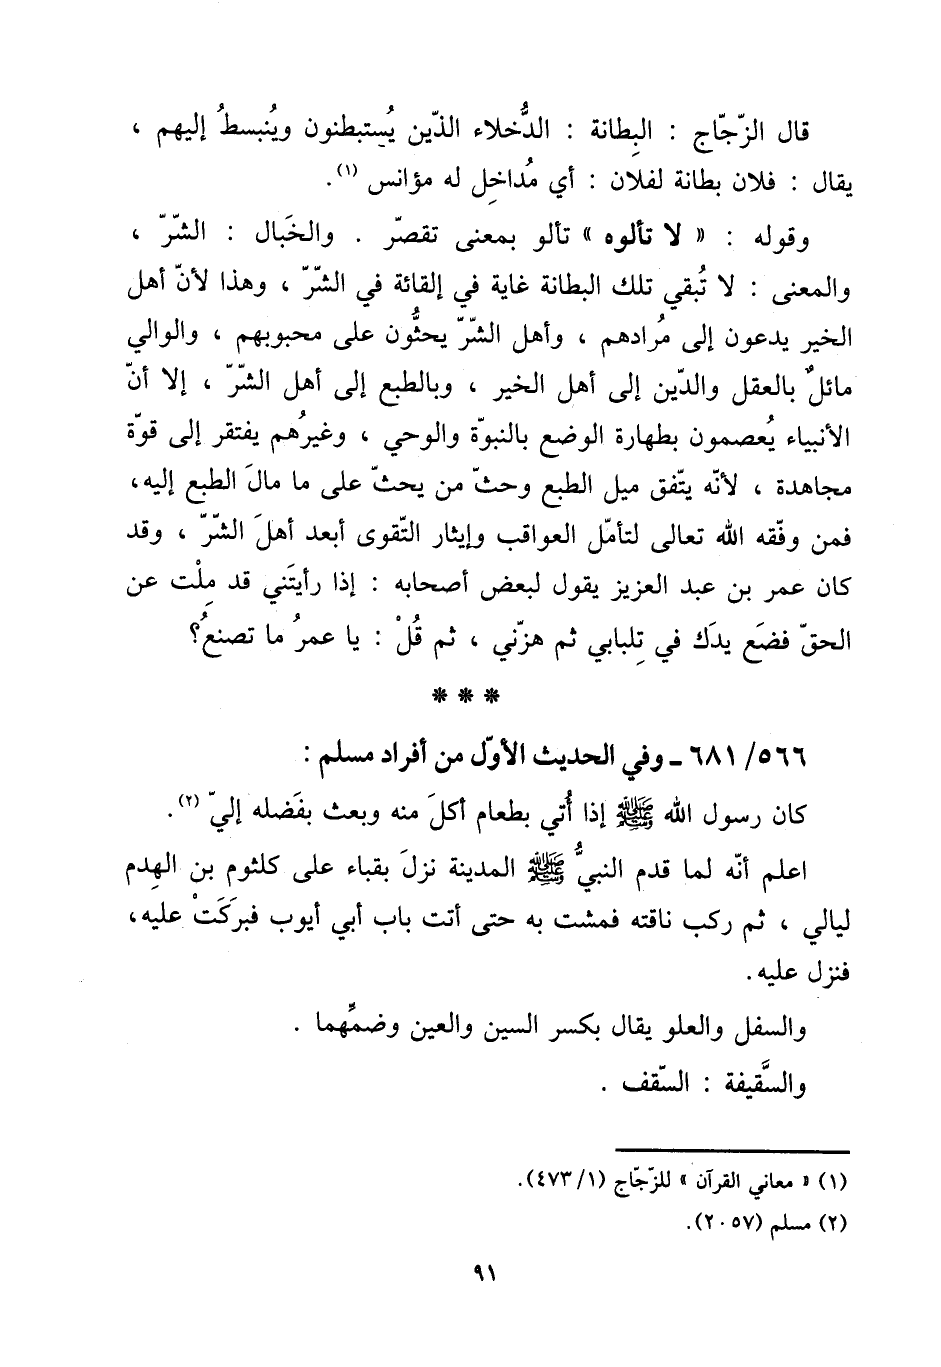 قال الزّجّاج : البِطانة : الدُّخلاء الذّين يُستبطنون ويُنبسطُ إليهم ،
يقال : فلان بطانة لفلان : أي مُداخِل له مؤانس (١).
وقوله : « لا تألوه » تألو بمعنى تقصرّ . والخَبال : الشّرّ ،
والمعنى : لا تُبقي تلك البطانة غاية في إلقائة في الشّرّ ، وهذا لأنّ أهل
الخير يدعون إلى مُرادهم ، وأهل الشّرّ يحثُّون على محبوبهم ، والوالي
مائلٌ بالعقل والدّين إلى أهل الخير ، وبالطبع إلى أهل الشّرّ ، إلا أنّ
الأنبياء يُعصمون بطهارة الوضع بالنبوّة والوحي ، وغيرُهم يفتقر إلى قوّة
مجاهدة ، لأنّه يتّفق ميل الطبع وحثّ من يحثّ على ما مالَ الطبع إليه،
فمن وفّقه الله تعالى لتأمّل العواقب وإيثار التّقوى أبعد أهلَ الشّرّ ، وقد
كان عمر بن عبد العزيز يقول لبعض أصحابه : إذا رأيتَني قد مِلْت عن
الحقّ فضَع يدَك في تِلبابي ثم هزّني ، ثم قُلْ : يا عمرُ ما تصنعُ؟
* * *
٥٦٦/ ٦٨١ ـ وفي الحديث الأوّل من أفراد مسلم :
كان رسول الله ﷺ إذا أُتي بطعام أكلَ منه وبعث بفَضله إليّ (٢).
اعلم أنّه لما قدم النبيُّ ﷺ المدينة نزلَ بقباء على كلثوم بن الهِدم
ليالي ، ثم ركب ناقته فمشت به حتى أتت باب أبي أيوب فبرَكَتْ عليه،
فنزل عليه.
والسفل والعلو يقال بكسر السين والعين وضمِّهما .
والسَّقيفة : السّقف .
(١) « معاني القرآن » للزّجّاج (١/ ٤٧٣).
(٢) مسلم (٢٠٥٧).
٩١